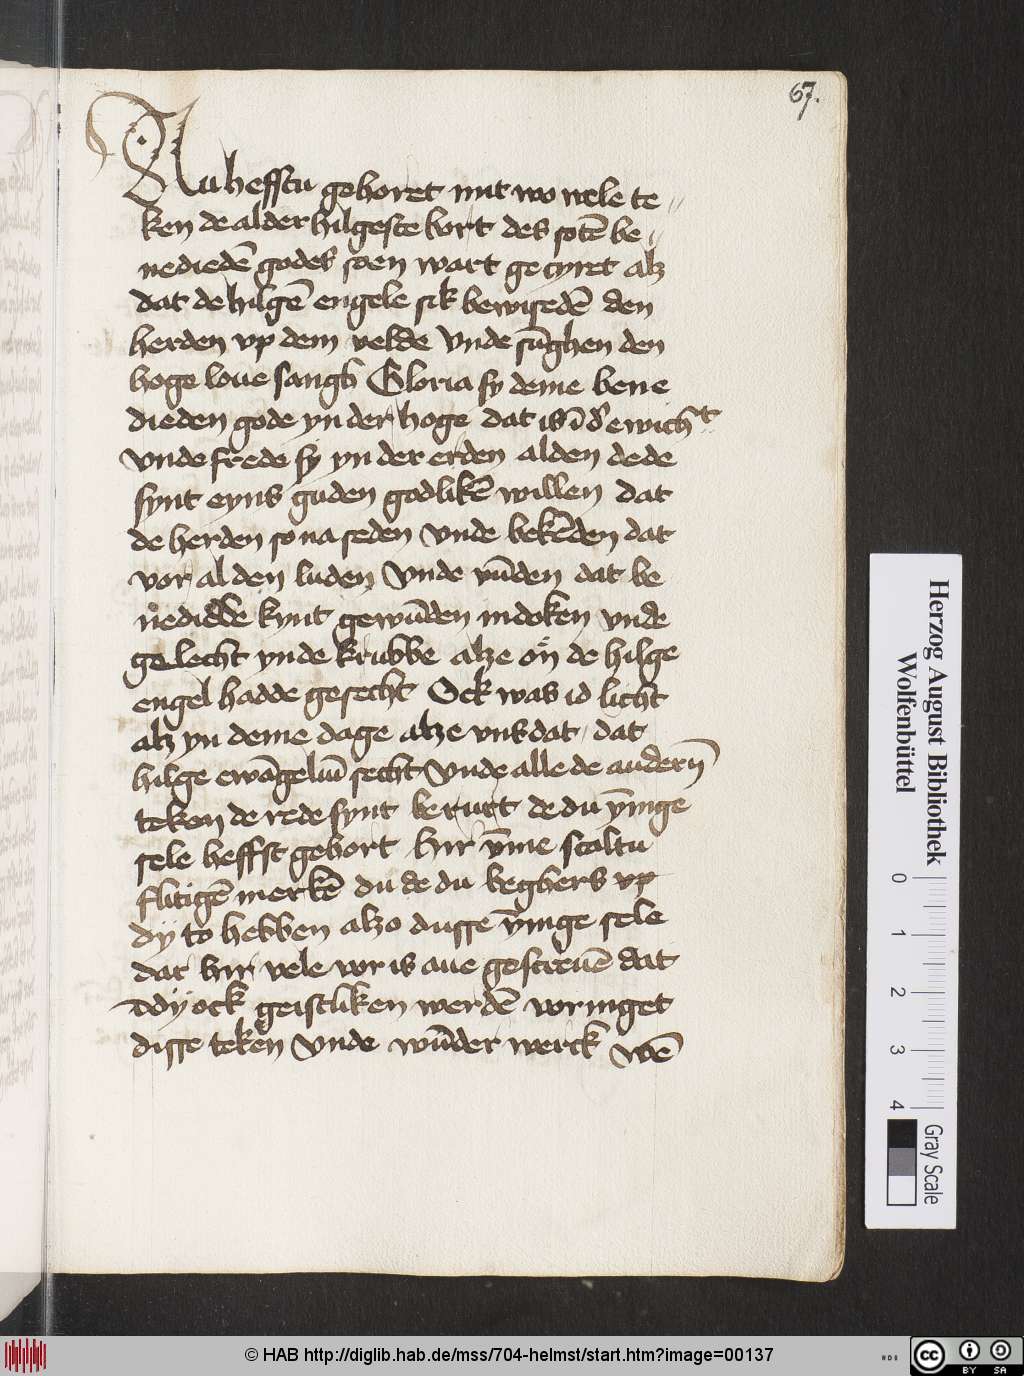 67.
Nu hefstu gehoret mit wo vele te〃
ken de alder hilgeste bort des sotē be〃
nediedē godes soen wart gecyret alz
dat de hilgē engele sik bewisedē den
herden vp dem velde vnde sūghen den
hoge loue sangk Gloria sy deme bene
dieden gode yn der hoge dat is ī d' ewich't
vnde frede sy yn der erden al den de de
synt eyns guden godlikē willen dat
de herden so na seden vnde bekēden dat
vor al den luden vnde vūden dat be
nediede kynt gewūden in doken vnde
gelecht yn de krubbe alze on de hilge
engel hadde gesecht Ock was id licht
alz yn deme dage alze vns dat dat
hilge ewāgeliū secht vnde alle de andern
teken de rede synt berurt de du ȳnige
sele heffst gehort hir v̄me scaltu
flitigē merkē du de du beghers vp
dy to hebben alzo dusse ȳnige sele
dat hir vele vor is aue gescreuē dat
dy ock geistliken werdē vorniget
disse teken vnde wūder werck wē
Herzog August Bibliothek
Wolfenbüttel
0 1 2 3 4
Gray Scale
© HAB http://diglib.hab.de/mss/704-helmst/start.htm?image=00137
HAB
cc BY SA